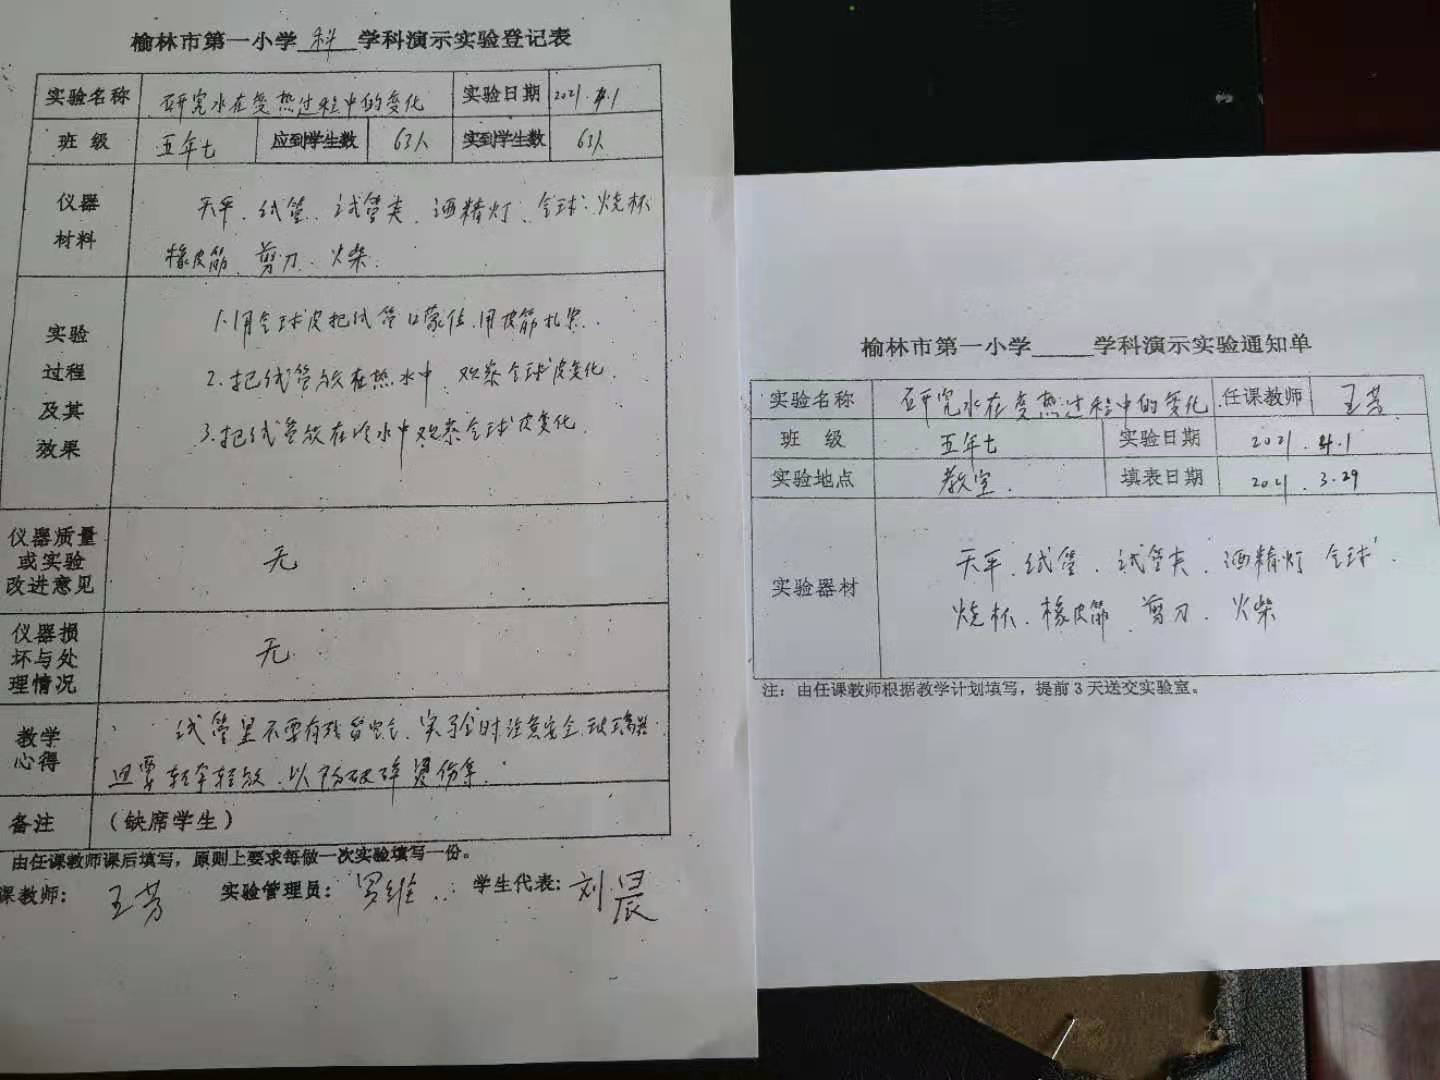 榆林市第一小学 科 学科演示实验登记表
实验名称 研究水在受热过程中的变化 实验日期 2021.4.1
班 级 五年七 应到学生数 63人 实到学生数 63人
仪器材料 天平、试管、试管夹、酒精灯、气球、烧杯
橡皮筋、剪刀、火柴
实验过程及其效果 1.用气球皮把试管口蒙住、用皮筋扎紧
2.把试管放在热水中、观察气球皮变化
3.把试管放在冷水中观察气球皮变化
仪器质量或实验改进意见 无
仪器损坏与处理情况 无
教学心得 试管里不要有残留空气、实验时注意安全、玻璃器
皿要轻拿轻放、以防破碎烫伤等
备注 （缺席学生）
由任课教师课后填写，原则上要求每做一次实验填写一份。
课教师： 王芳 实验管理员： 罗维 学生代表： 刘晨
榆林市第一小学_____学科演示实验通知单
实验名称 研究水在受热过程中的变化 任课教师 王芳
班 级 五年七 实验日期 2021.4.1
实验地点 教室 填表日期 2021.3.29
实验器材 天平、试管、试管夹、酒精灯 气球、
烧杯、橡皮筋、剪刀、火柴
注：由任课教师根据教学计划填写，提前3天送交实验室。